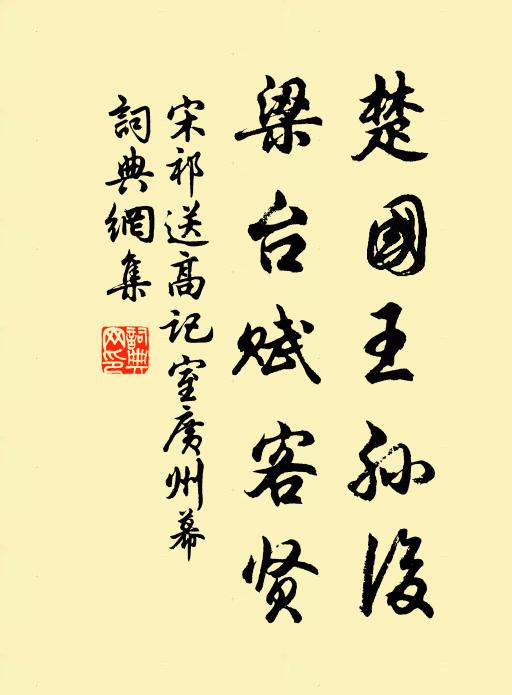 楚國王孫後
梁台赋客贤
宋祁送高記室廣州幕
詞典網集
詞典網印